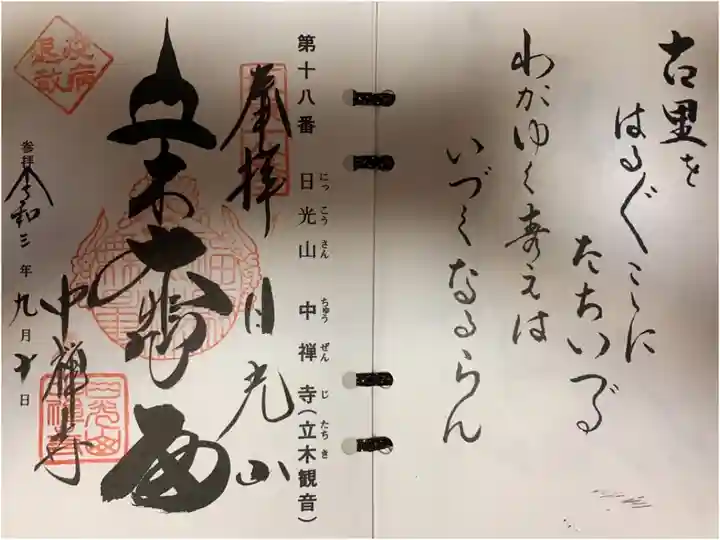 古里を
はる〲こゝに
たちいづる
わがゆく素えは
いづくなるらん
第十八番 日光山 中禅寺(立木観音)
にっこうさん ちゅうぜんじ たちき
奉拝
日光山
立木大悲殿
中禅寺
疫病退散
参拝 令和三年九月 日